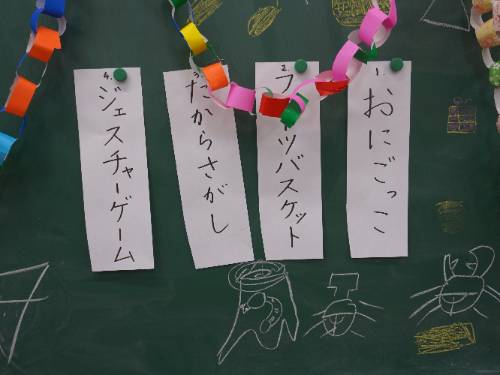 1. おにごっこ
2. フルーツバスケット
3. たからさがし
4. ジェスチャーゲーム